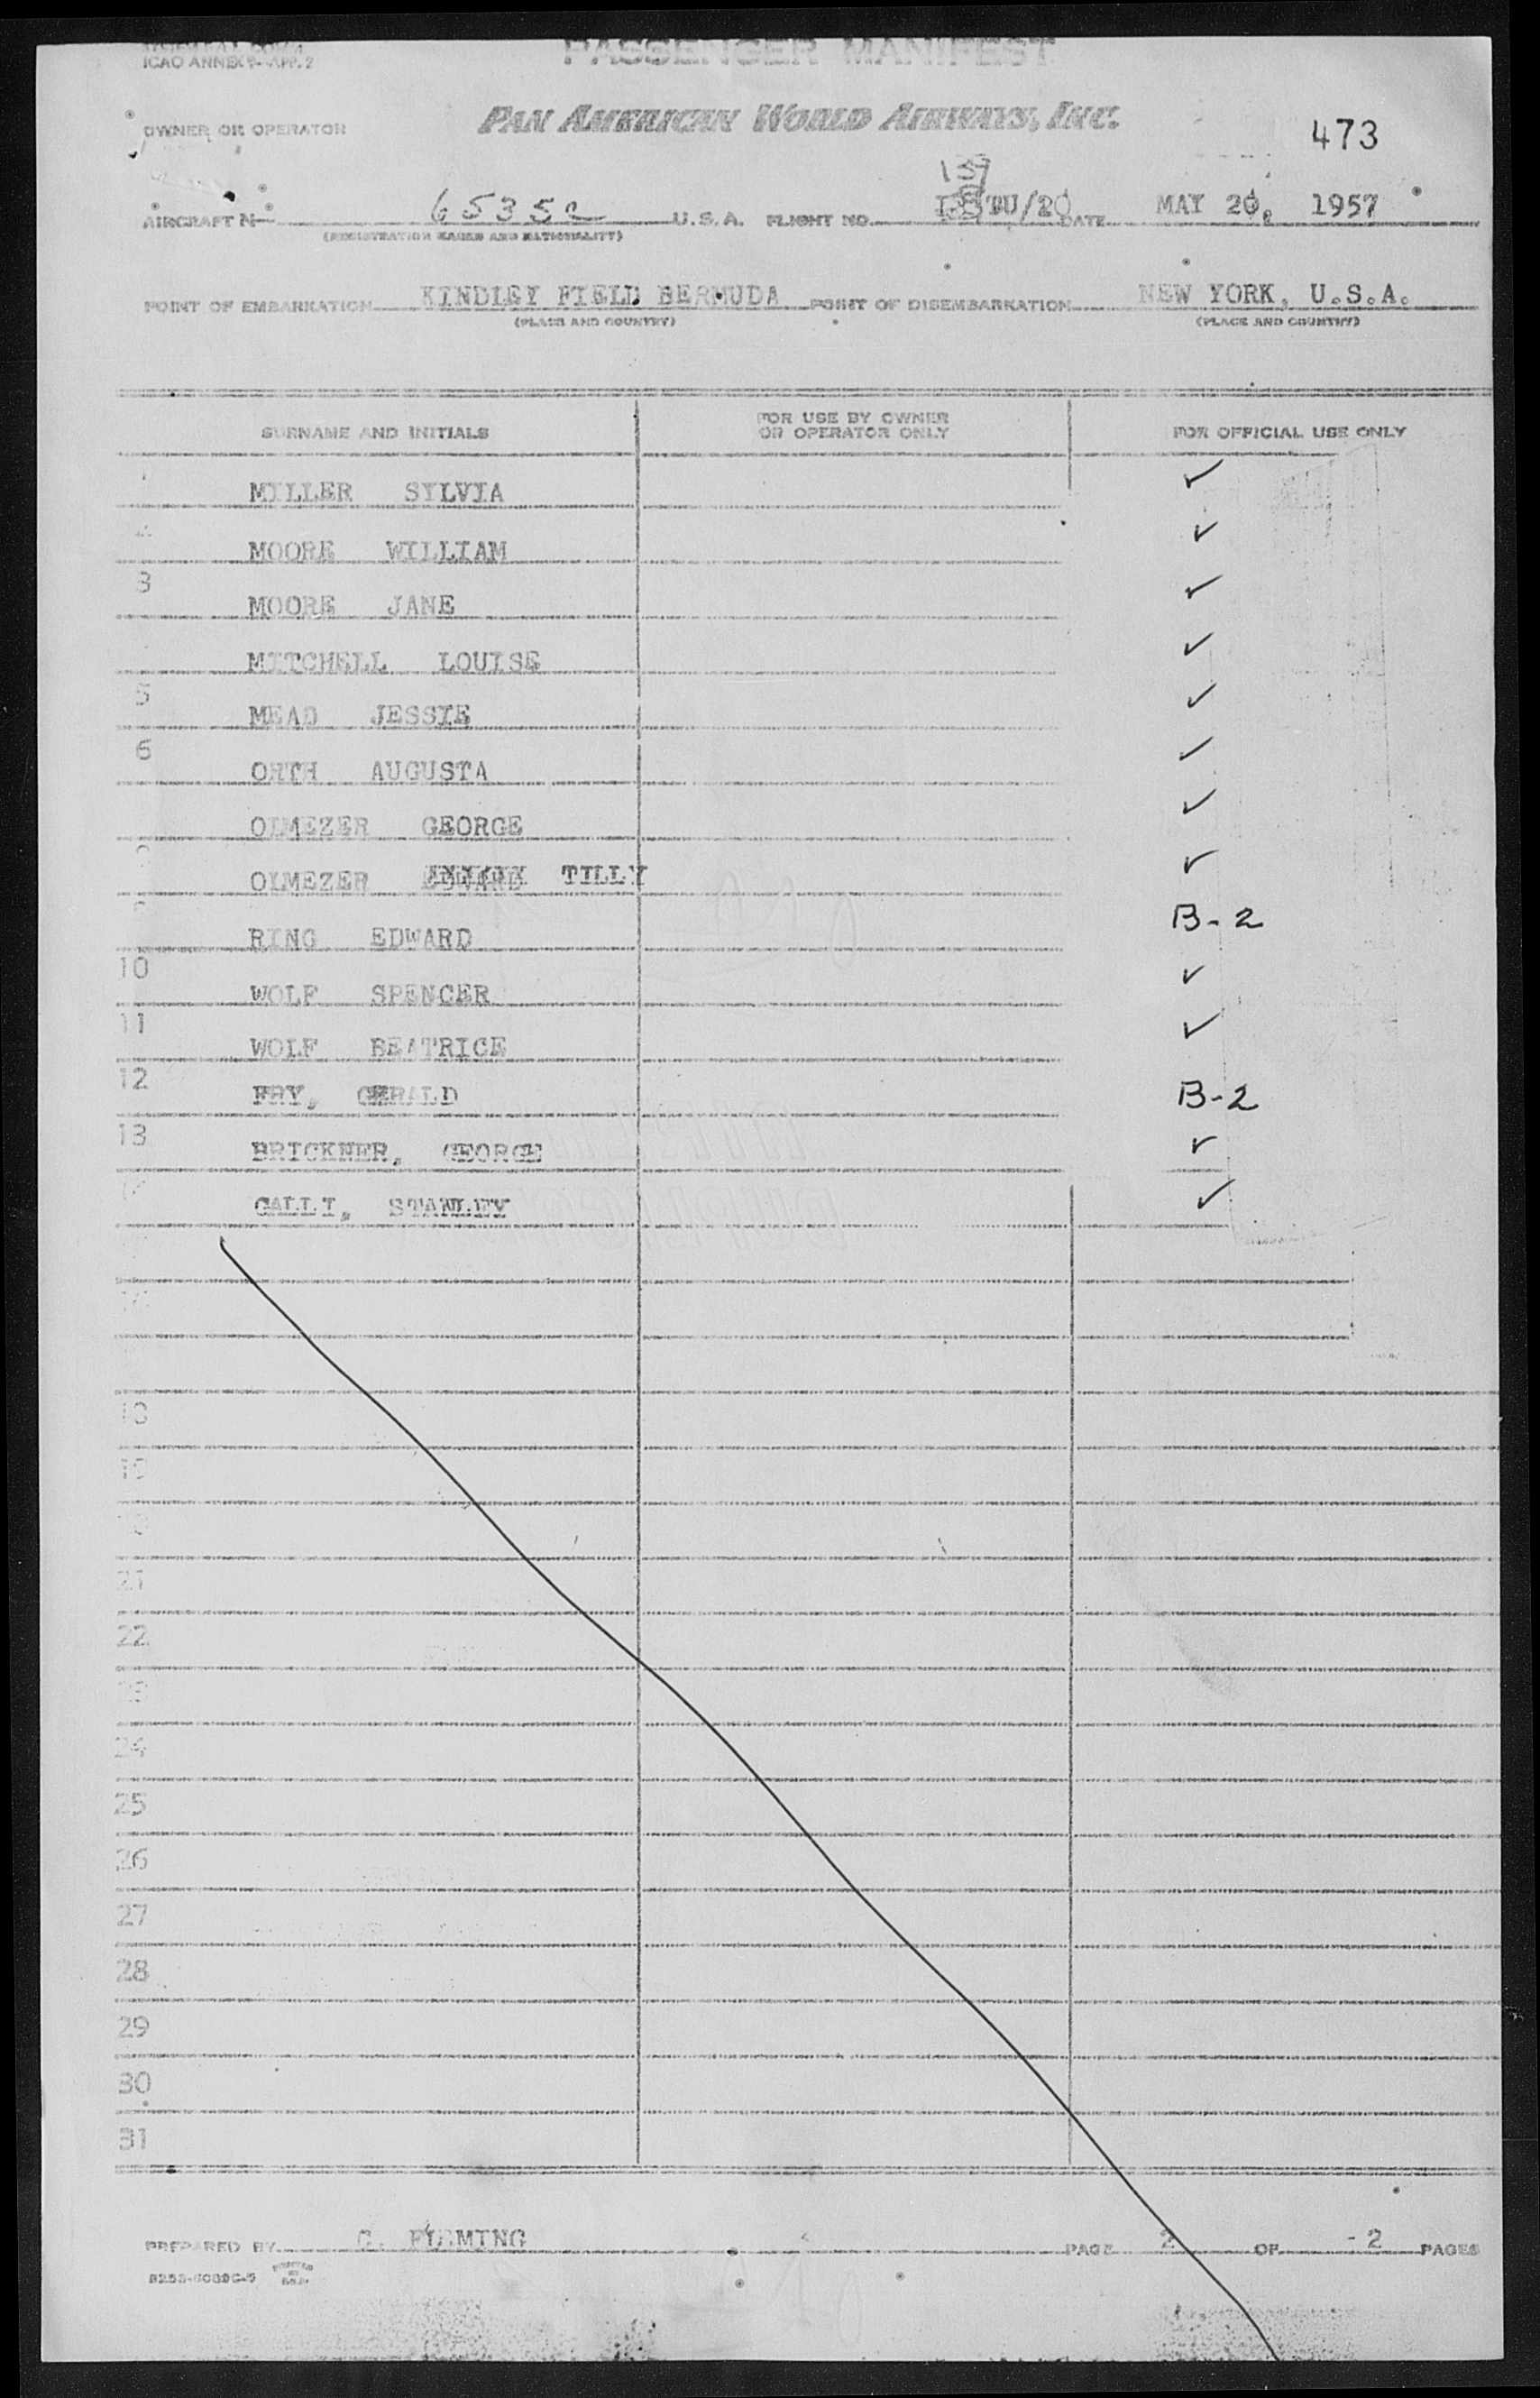 ICAO ANNEX 9-APP. 2
PASSENGER MANIFEST
OWNER OR OPERATOR
PAN AMERICAN WORLD AIRWAYS, INC.
473
159
AIRCRAFT N- 65352 U.S.A. FLIGHT NO. TU/20 DATE MAY 20, 1957
(REGISTRATION MARKS AND NATIONALITY)
POINT OF EMBARKATION KINDLEY FIELD BERMUDA POINT OF DISEMBARKATION NEW YORK, U.S.A.
(PLACE AND COUNTRY) (PLACE AND COUNTRY)
SURNAME AND INITIALS FOR USE BY OWNER OR OPERATOR ONLY FOR OFFICIAL USE ONLY
MILLER SYLVIA ✓
MOORE WILLIAM ✓
3 MOORE JANE ✓
MITCHELL LOUISE ✓
5 MEAD JESSIE ✓
6 ORTH AUGUSTA ✓
OLMEZER GEORGE ✓
OLMEZER TILLY ✓
RING EDWARD B-2
10 WOLF SPENCER ✓
11 WOLF BEATRICE ✓
12 FRY, GERALD B-2
13 BRICKNER, GEORGE ✓
GALLI, STANLEY ✓
18
19
21
22
23
24
25
26
27
28
29
30
31
PREPARED BY C. FLEMING PAGE 2 OF 2 PAGES